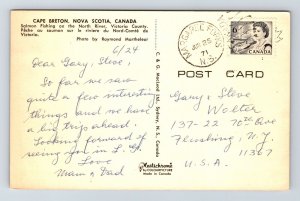 CAPE BRETON, NOVA SCOTIA, CANADA
Salmon Fishing on the North River, Victoria County.
Pêche au saumon sur le rivière du Nord-Comté de
Victoria.
Photo by Raymond Martheleur
6/24
Dear Gary, Steve,
So far we saw
quite a few interesting
things and we have
a big trip ahead.
Looking forward to
seeing you in L. I.
Love
Mom & Dad
C. & G. MacLeod Ltd. Sydney, N.S., Canada
Plastichrome
by COLOURPICTURE
Made in Canada
MARGAREE FORKS
25
71
N.S.
6
CANADA
POST CARD
Gary & Steve
Wolter
137-22 70th Ave
Flushing, N.Y.
11367
U.S.A.